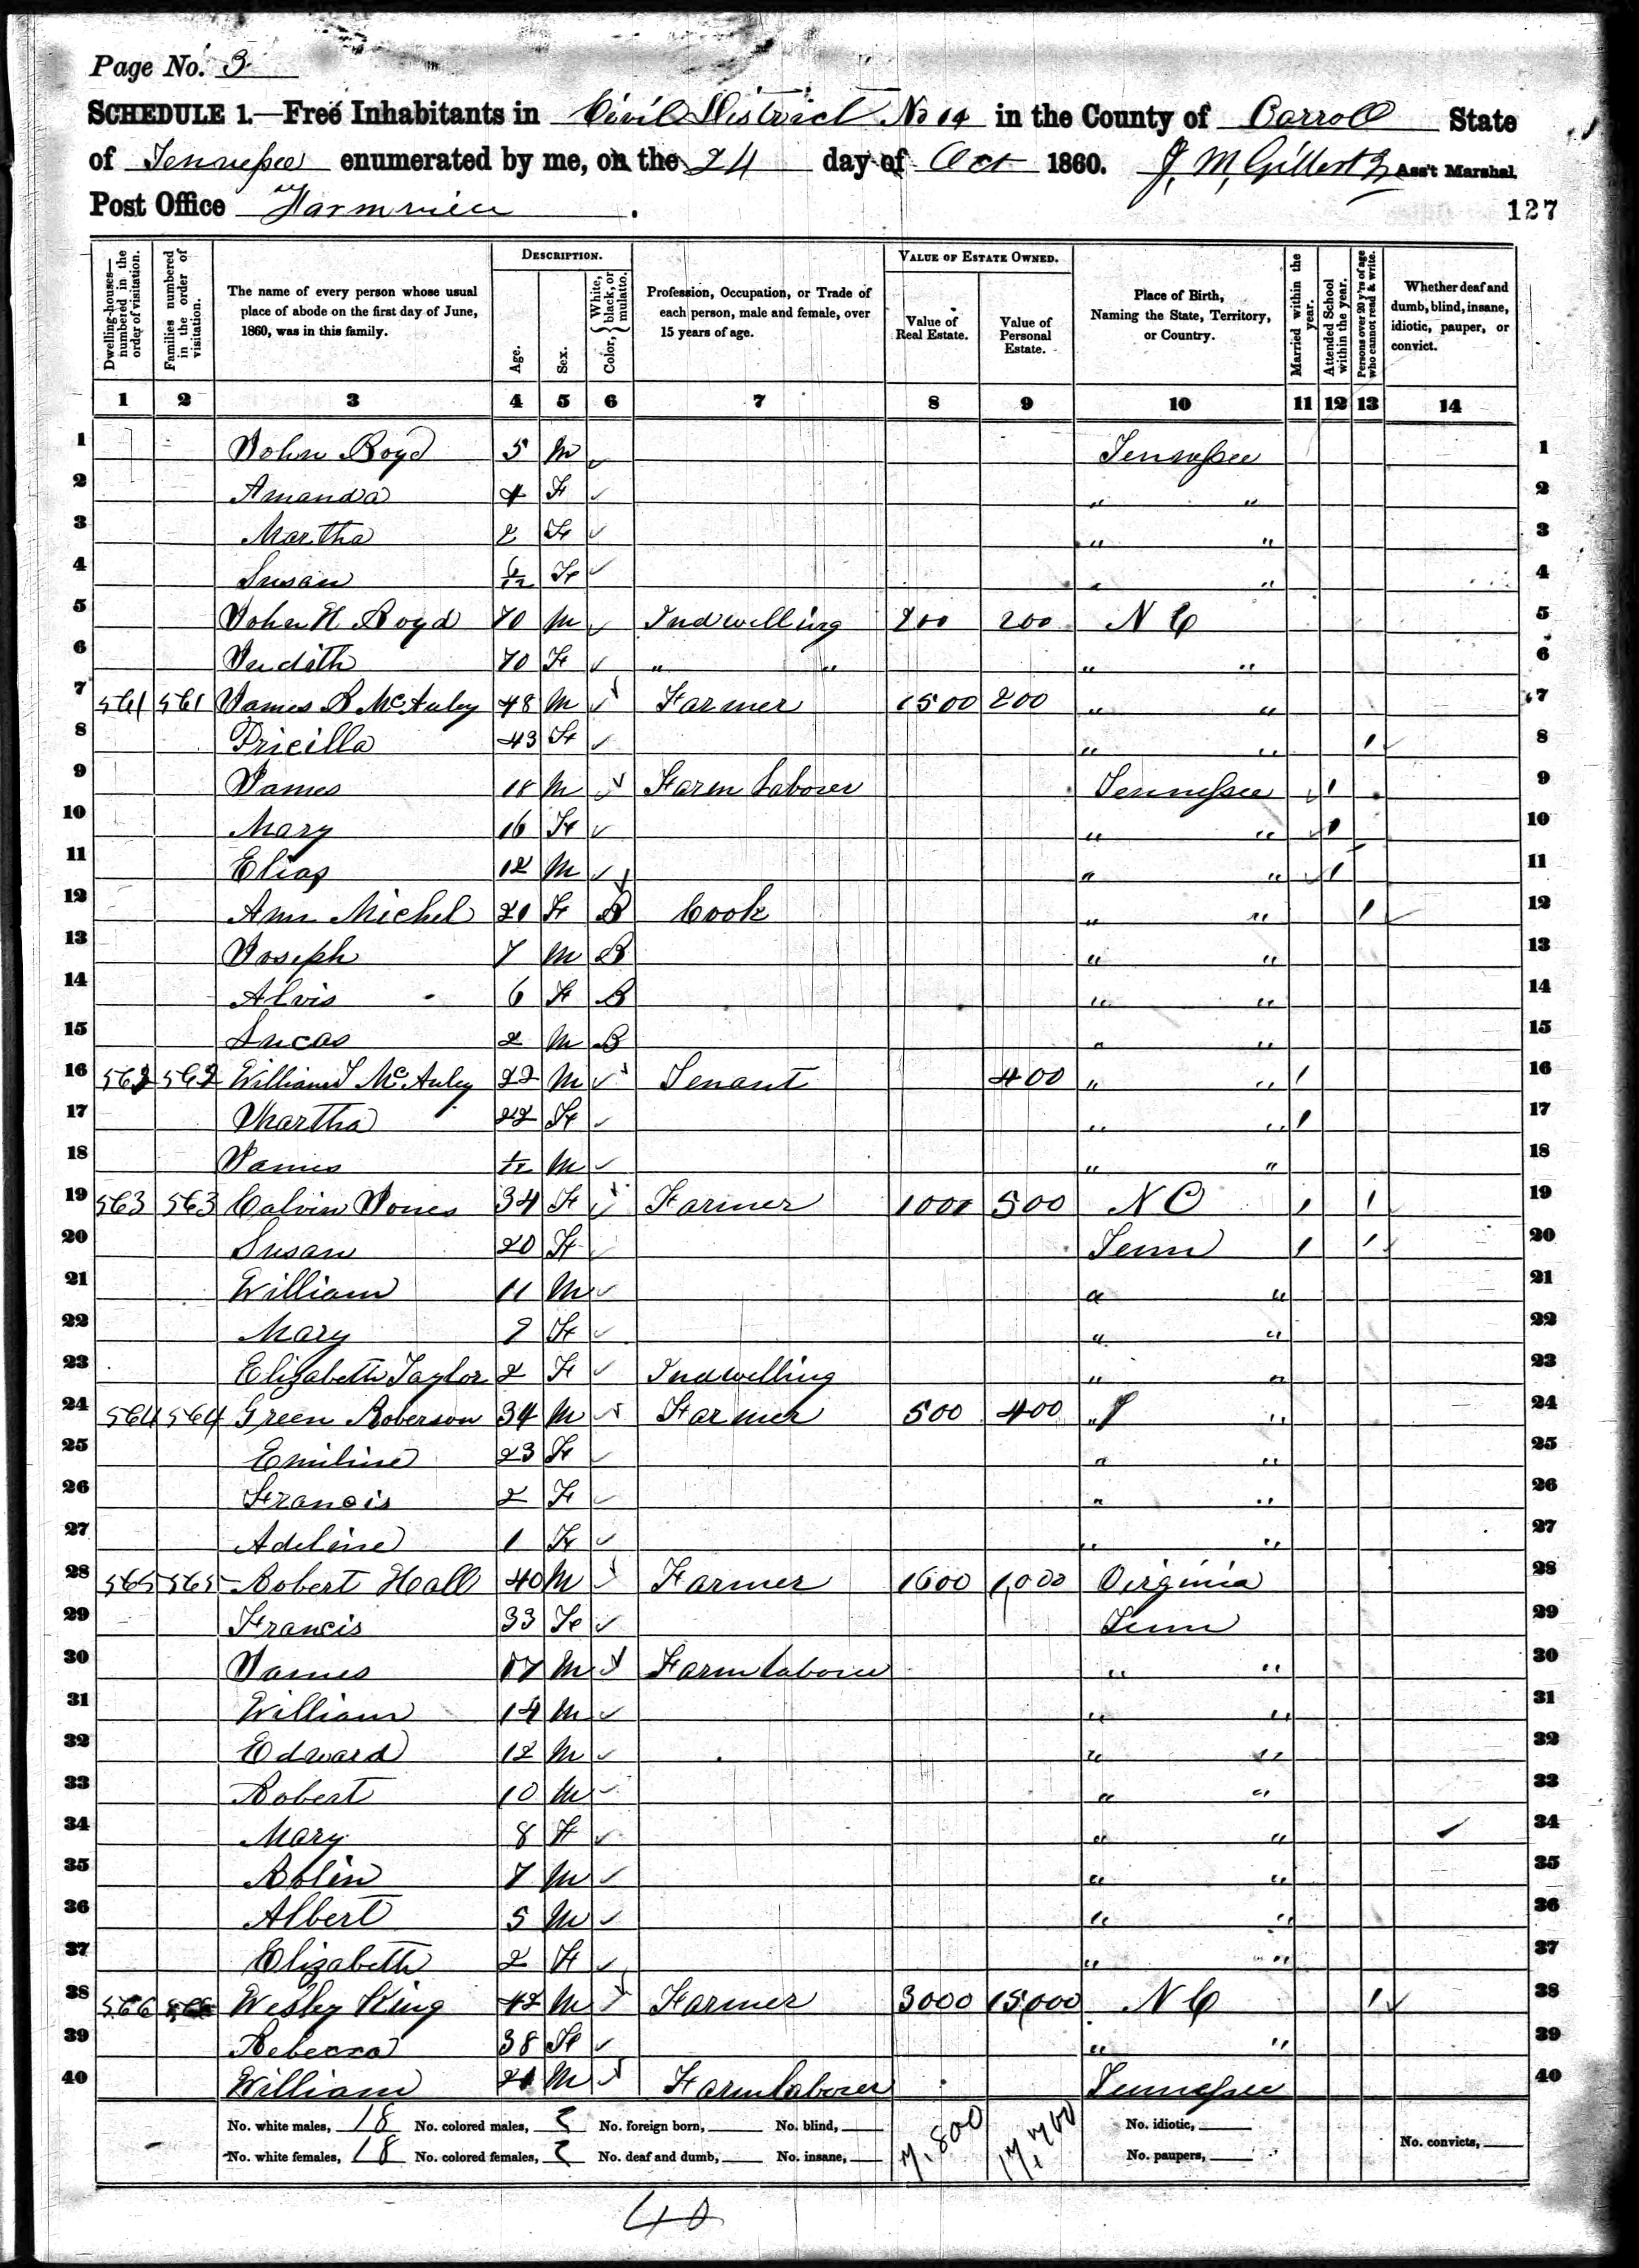 Page No. 3
SCHEDULE 1.—Free Inhabitants in Civil District No 14 in the County of Carroll State
of Tennessee enumerated by me, on the 24 day of Oct 1860. J. M. Gilbert Ass't Marshal.
Post Office
127
Dwelling-houses—numbered in the order of visitation.
Families numbered in the order of visitation.
The name of every person whose usual place of abode on the first day of June, 1860, was in this family.
DESCRIPTION.
Age.
Sex.
Color, { White, black, or mulatto.
Profession, Occupation, or Trade of each person, male and female, over 15 years of age.
VALUE OF ESTATE OWNED.
Value of Real Estate.
Value of Personal Estate.
Place of Birth, Naming the State, Territory, or Country.
Married within the year.
Attended School within the year.
Persons over 20 y'rs of age who cannot read & write.
Whether deaf and dumb, blind, insane, idiotic, pauper, or convict.
1 2 3 4 5 6 7 8 9 10 11 12 13 14
1 John Boyd 5 M Tennessee 1
2 Amanda 4 F " " 2
3 Martha 2 F " " 3
4 Susan 6/12 F " " 4
5 John H Boyd 70 M Indwelling 200 200 N C 5
6 Judith 70 F " " " " 6
7 561 561 James B McAuley 48 M Farmer 1500 200 " " 7
8 Pricilla 43 F " " 1 8
9 James 18 M Farm Laborer Tennessee 1 9
10 Mary 16 F " " 1 10
11 Elias 12 M " " 1 11
12 Ann Michel 21 F B Cook " " 1 12
13 Joseph 7 M B " " 13
14 Alvis 6 F B " " 14
15 Lucas 2 M B " " 15
16 562 562 William S McAuley 22 M Tenant 400 " " 1 16
17 Martha 22 F " " 1 17
18 James M " " 18
19 563 563 Calvin Jones 34 F Farmer 1000 500 N C 1 1 19
20 Susan 20 F Tenn 1 1 20
21 William 11 M " " 21
22 Mary 9 F " " 22
23 Elizabeth Taylor 2 F Indwelling " " 23
24 564 564 Green Roberson 34 M Farmer 500 400 " " 24
25 Emiline 23 F " " 25
26 Francis 2 F " " 26
27 Adeline 1 F " " 27
28 565 565 Robert Hall 40 M Farmer 1600 1,000 Virginia 28
29 Francis 33 F Tenn 29
30 James 17 M Farm laborer " " 30
31 William 14 M " " 31
32 Edward 12 M " " 32
33 Robert 10 M " " 33
34 Mary 8 F " " 34
35 Rolin 7 M " " 35
36 Albert 5 M " " 36
37 Elizabeth 2 F " " 37
38 566 566 Wesley King 42 M Farmer 3000 15,000 N C 1 38
39 Rebecca 38 F " " 39
40 William 21 M Farm laborer Tennessee 40
No. white males, 18 No. colored males, 2 No. foreign born, No. blind, 7,800 17,700 No. idiotic,
No. white females, 18 No. colored females, 2 No. deaf and dumb, No. insane, No. paupers, No. convicts,
40